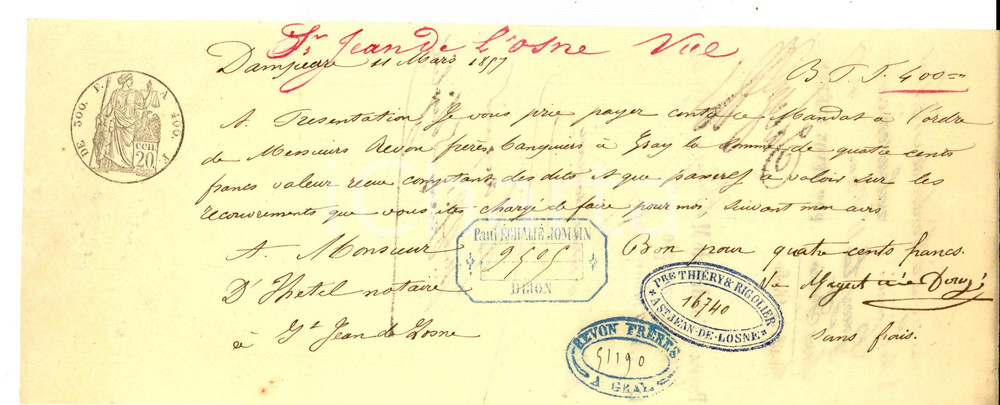 St Jean de L'osne Vue
Dampierre 11 Mars 1897
B. P. F. 400=
A Presentation, Je vous prie payer contre ce Mandat à l'ordre
de Messieurs Revon frères banquiers à Gray la somme de quatre cents
francs valeur reçue comptant des dits et que passerez à valoir sur les
recouvrements que vous êtes chargé de faire pour moi, suivant mon avis
A Monsieur
D'Hetel notaire
à St Jean de Losne
Bon pour quatre cents francs.
Ve Magert née
sans frais.
DE 300. F. A 400. F.
CEN.
20
Paul ÉCHALIÉ JOMAIN
9505
DIJON
PRE THIÉRY & RIGOLIER
16740
A ST JEAN-DE-LOSNE
REVON FRÈRES
51190
A GRAY